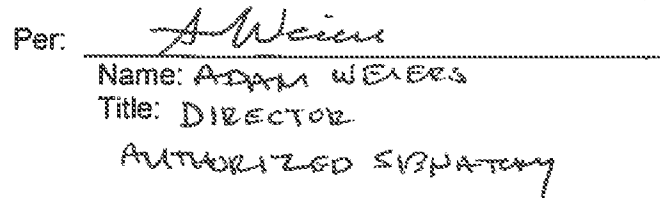 Per: A Weiers
Name: ADAM WEIERS
Title: DIRECTOR
AUTHORIZED SIGNATORY